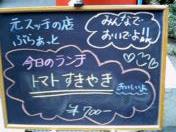 元スッチの店
ぷらぁっと
みんなで
おいでよ!!
今日のランチ
トマトすきやき
おいしいよ
¥700-